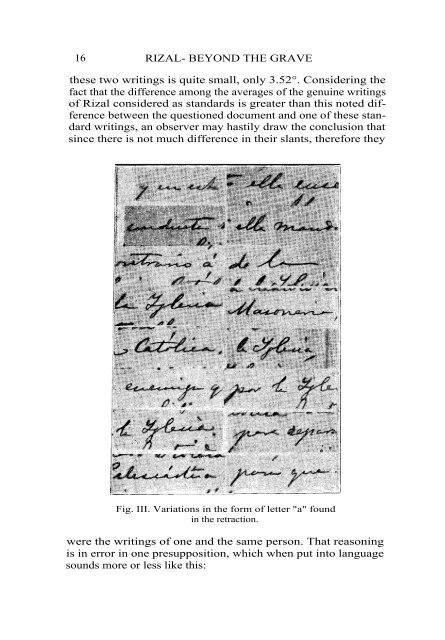 16 RIZAL- BEYOND THE GRAVE
these two writings is quite small, only 3.52°. Considering the
fact that the difference among the averages of the genuine writings
of Rizal considered as standards is greater than this noted dif-
ference between the questioned document and one of these stan-
dard writings, an observer may hastily draw the conclusion that
since there is not much difference in their slants, therefore they
y en esta ella
conducta ella
á de la
la Iglesia Masoneria,
Católica, la Iglesia
enemiga y por la Igle
la Iglesia, para
para que
Fig. III. Variations in the form of letter "a" found
in the retraction.
were the writings of one and the same person. That reasoning
is in error in one presupposition, which when put into language
sounds more or less like this: